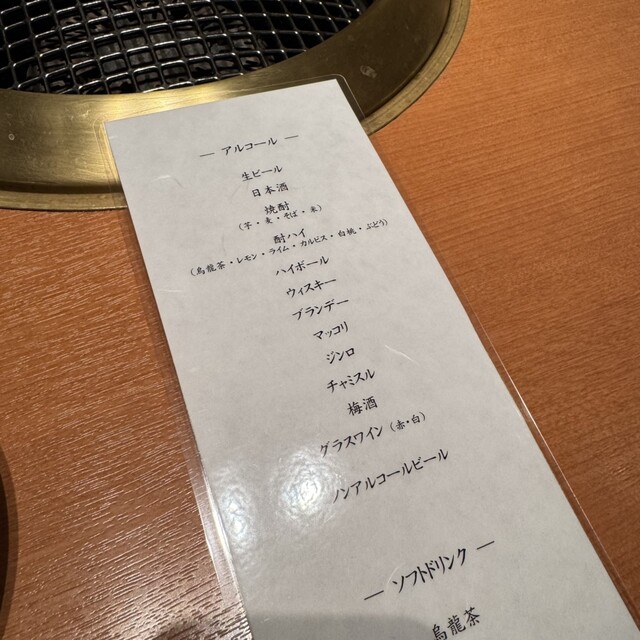 ― アルコール ―
生ビール
日本酒
焼酎
(芋・麦・そば・米)
酎ハイ
(烏龍茶・レモン・ライム・カルピス・白桃・ぶどう)
ハイボール
ウィスキー
ブランデー
マッコリ
ジンロ
チャミスル
梅酒
グラスワイン(赤・白)
ノンアルコールビール
― ソフトドリンク ―
烏龍茶